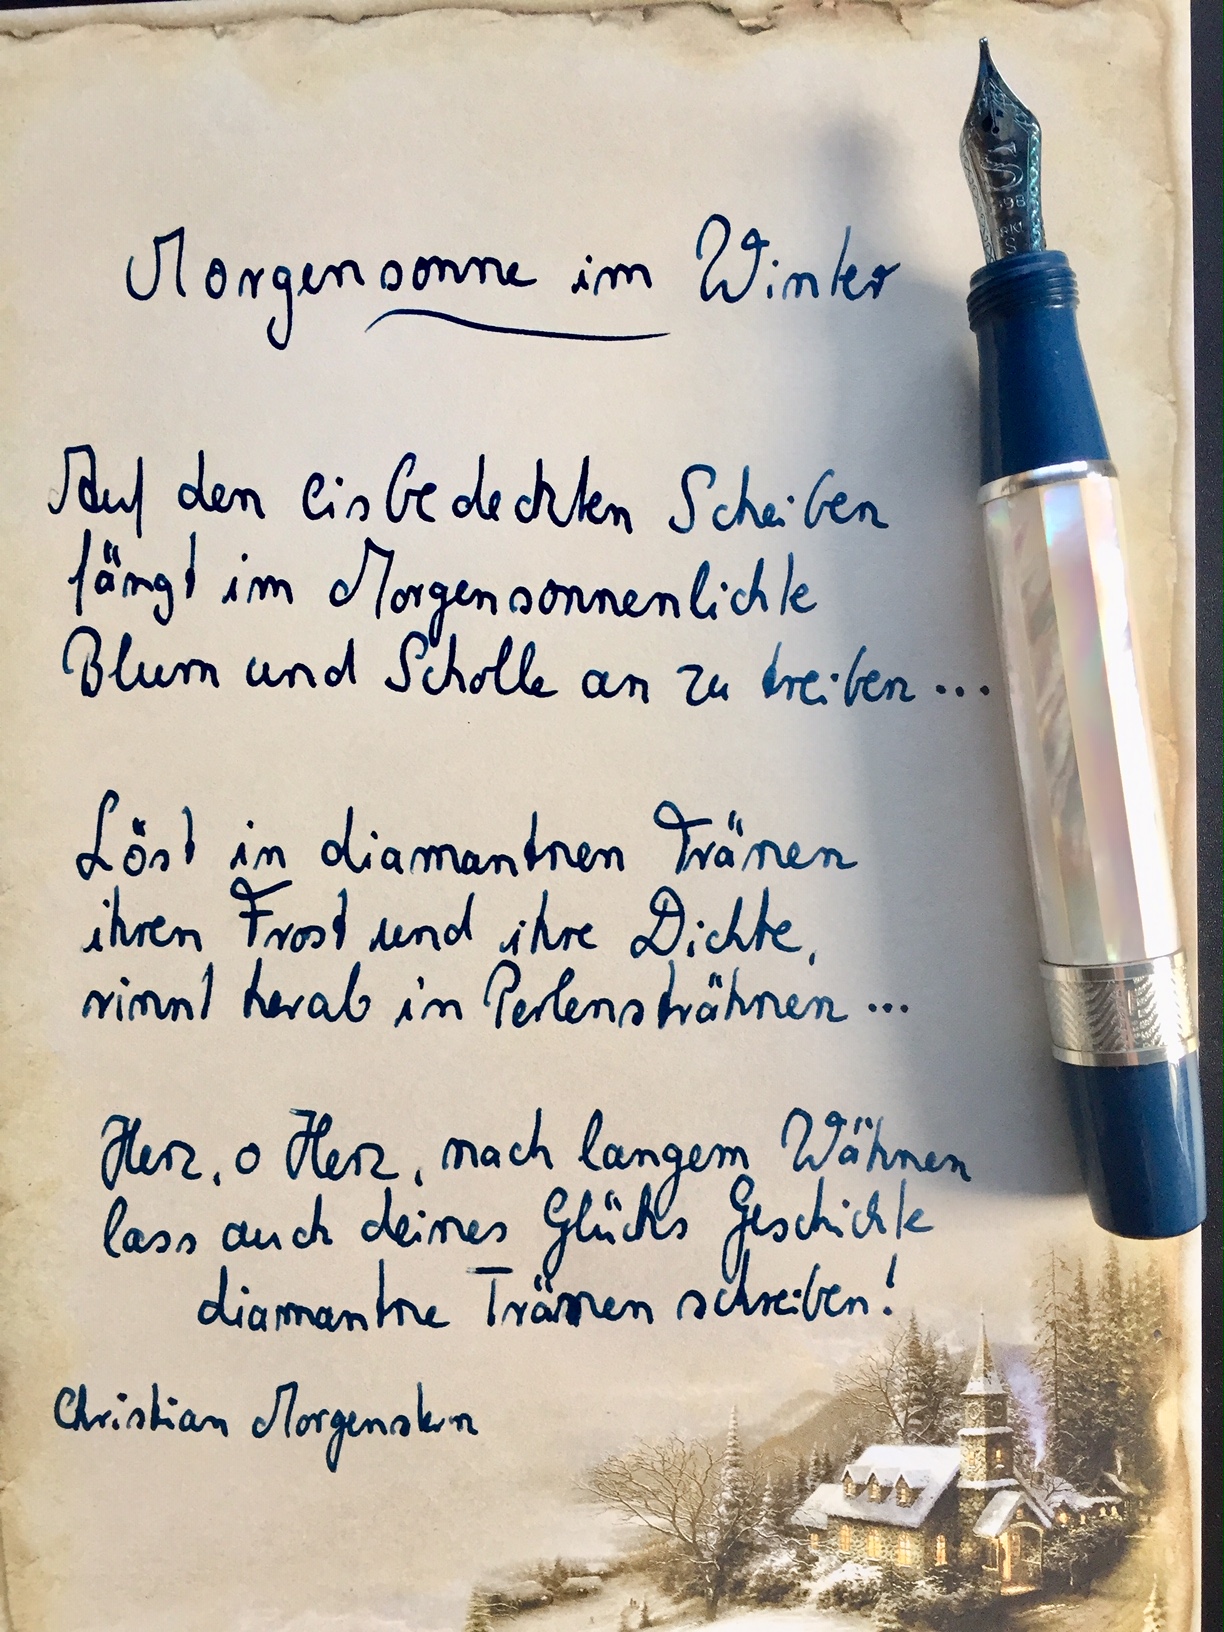 Morgensonne im Winter
Auf den eisbedeckten Scheiben
fängt im Morgensonnenlichte
Blum und Scholle an zu treiben...
Löst in diamantnen Tränen
ihren Frost und ihre Dichte,
rinnt herab in Perlensträhnen...
Herz, o Herz, nach langem Wähnen
lass auch deines Glücks Geschichte
diamantne Tränen schreiben!
Christian Morgenstern